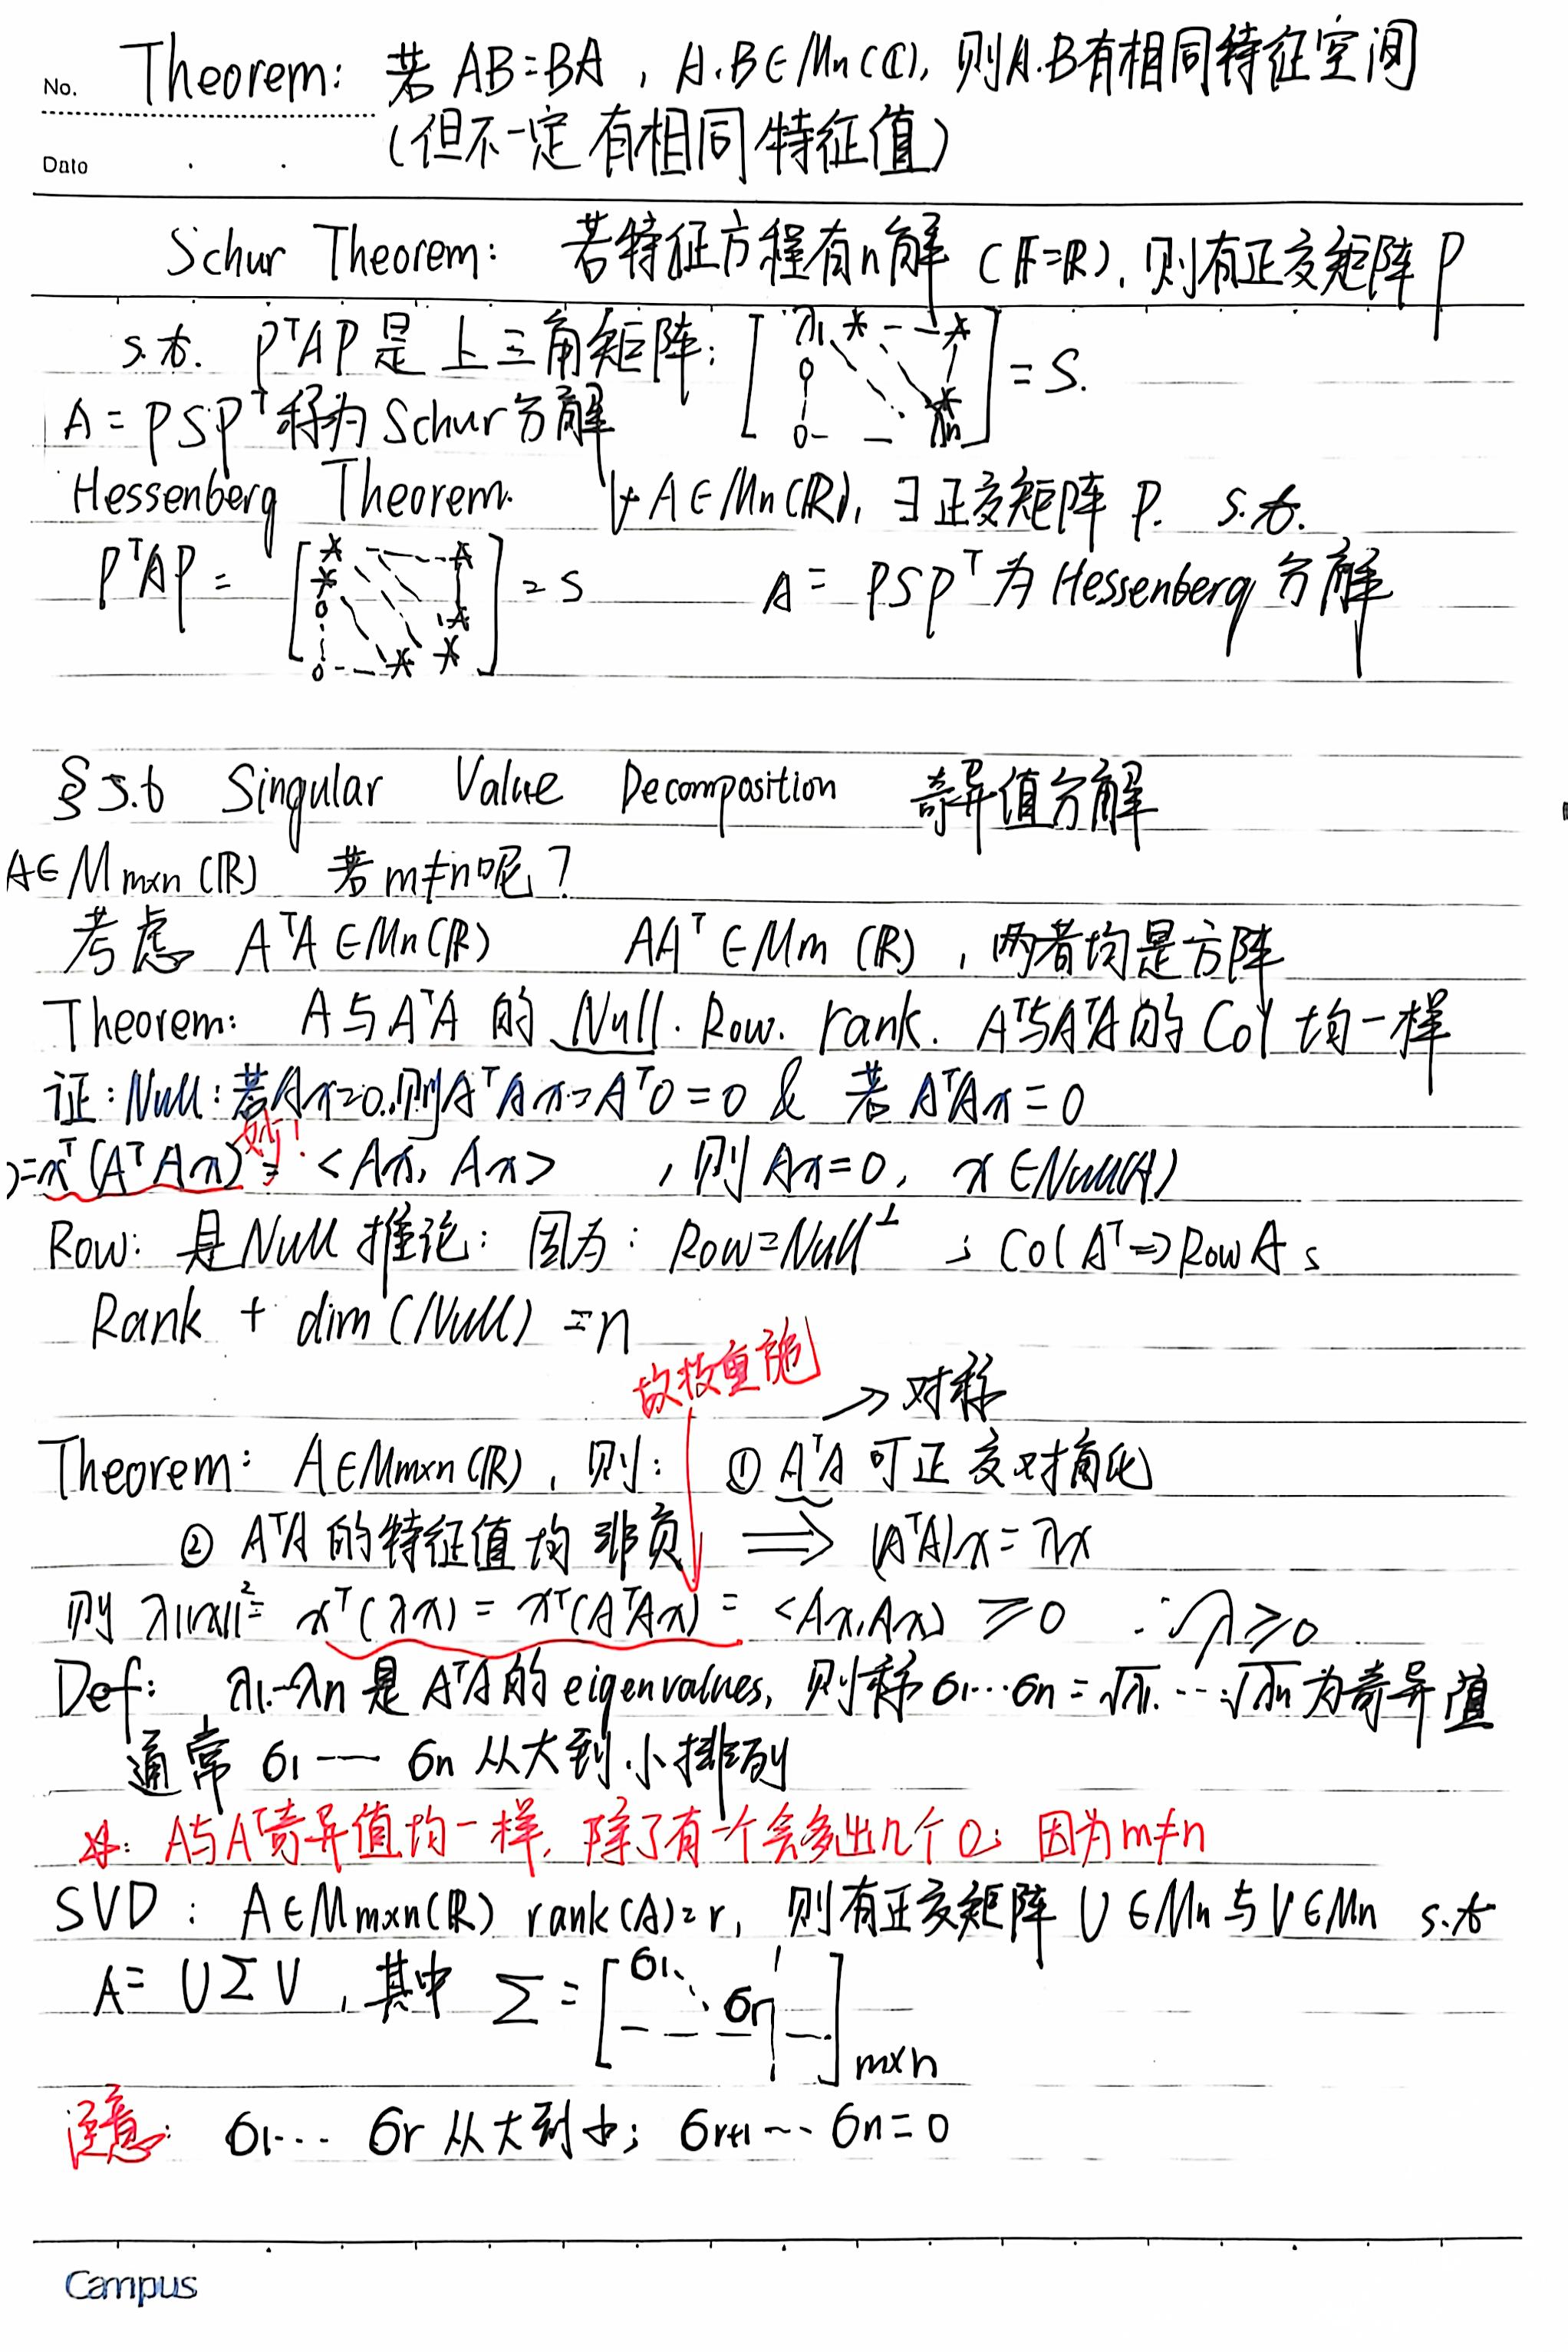 No.
Date
Theorem: 若 AB=BA , A.B∈Mn(ℂ), 则A.B有相同特征空间
(但不一定有相同特征值)
Schur Theorem: 若特征方程有n解 (F=ℝ), 则有正交矩阵 P
s.t. PᵀAP是上三角矩阵: [λ1 * – – * 0 ⋮ 0 – – λn] = S.
A = PSPᵀ 称为 Schur 分解
Hessenberg Theorem. ∀A∈Mn(ℝ), ∃正交矩阵 P. s.t.
PᵀAP = [* – – * * 0 ⋮ * 0 – – * *] = S A = PSPᵀ 为 Hessenberg 分解
§5.6 Singular Value Decomposition 奇异值分解
A∈Mm×n(ℝ) 若m≠n呢?
考虑 AᵀA∈Mn(ℝ) AAᵀ∈Mm(ℝ) , 两者均是方阵
Theorem: A与AᵀA 的 Null. Row. rank. Aᵀ与AᵀA的Col 均一样
证: Null: 若Ax=0.则AᵀAx=Aᵀ0=0 & 若 AᵀAx=0
妙!
)=xᵀ(AᵀAx) = <Ax, Ax> , 则 Ax=0, x∈Null(A)
Row: 是Null 推论: 因为: Row=Null⊥ ; Col Aᵀ⇒Row A ;
Rank + dim(Null) = n
故技重施
→ 对称
Theorem: A∈Mm×n(ℝ), 则: ① AᵀA 可正交对角化
② AᵀA 的特征值均非负 ⟹ (AᵀA)x=λx
则 λ||x||²= xᵀ(λx) = xᵀ(AᵀAx) = <Ax,Ax> ≥0 ∴λ≥0
Def: λ1.–λn 是 AᵀA的 eigenvalues, 则称 σ1···σn=√λ1.···√λn 为奇异值
通常 σ1 — σn 从大到小排列
※: A与Aᵀ奇异值均一样, 除了有一个会多出几个0; 因为m≠n
SVD : A∈Mm×n(ℝ) rank(A)=r, 则有正交矩阵 U∈Mn与V∈Mn s.t
A= UΣV , 其中 Σ = [σ1 ⋱ σr] m×n
注意: σ1··· σr 从大到小; σr+1··· σn=0
Campus